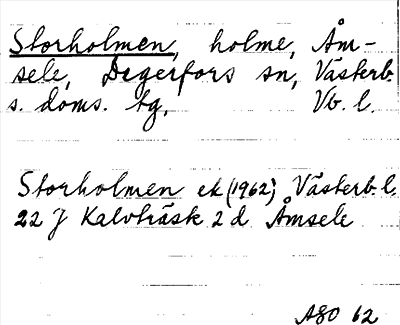 Storholmen, holme, Åm-
sele, Degerfors sn, Västerb.
s. doms. tg, Vb. l.
Storholmen ek (1962); Västerb. l
22 J Kalvträsk 2 d Åmsele
ASO 62